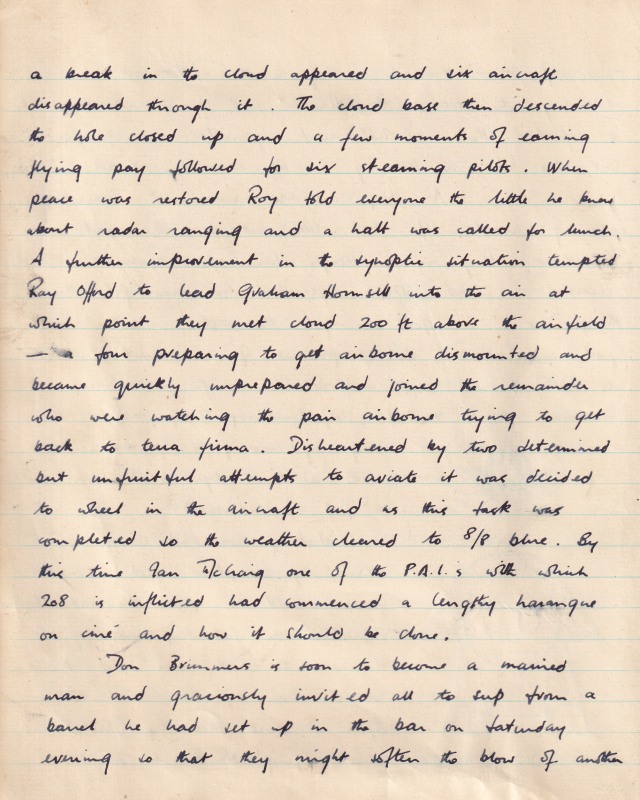 a break in the cloud appeared and six aircraft
disappeared through it. The cloud base then descended
the hole closed up and a few moments of earning
flying pay followed for six steaming pilots. When
peace was restored Roy told everyone the little he knew
about radar ranging and a halt was called for lunch.
A further improvement in the synoptic situation tempted
Ray Offord to lead Graham Hounsell into the air at
which point they met cloud 200 ft above the airfield
— a four preparing to get airborne dismounted and
became quickly unprepared and joined the remainder
who were watching the pair airborne trying to get
back to terra firma. Disheartened by two determined
but unfruitful attempts to aviate it was decided
to wheel in the aircraft and as this task was
completed so the weather cleared to 8/8 blue. By
this time Ian McCraig one of the P.A.I.s with which
208 is inflicted had commenced a lengthy harangue
on ciné and how it should be done.
Don Brimmers is soon to become a married
man and graciously invited all to sup from a
barrel he had set up in the bar on Saturday
evening so that they might soften the blow of another